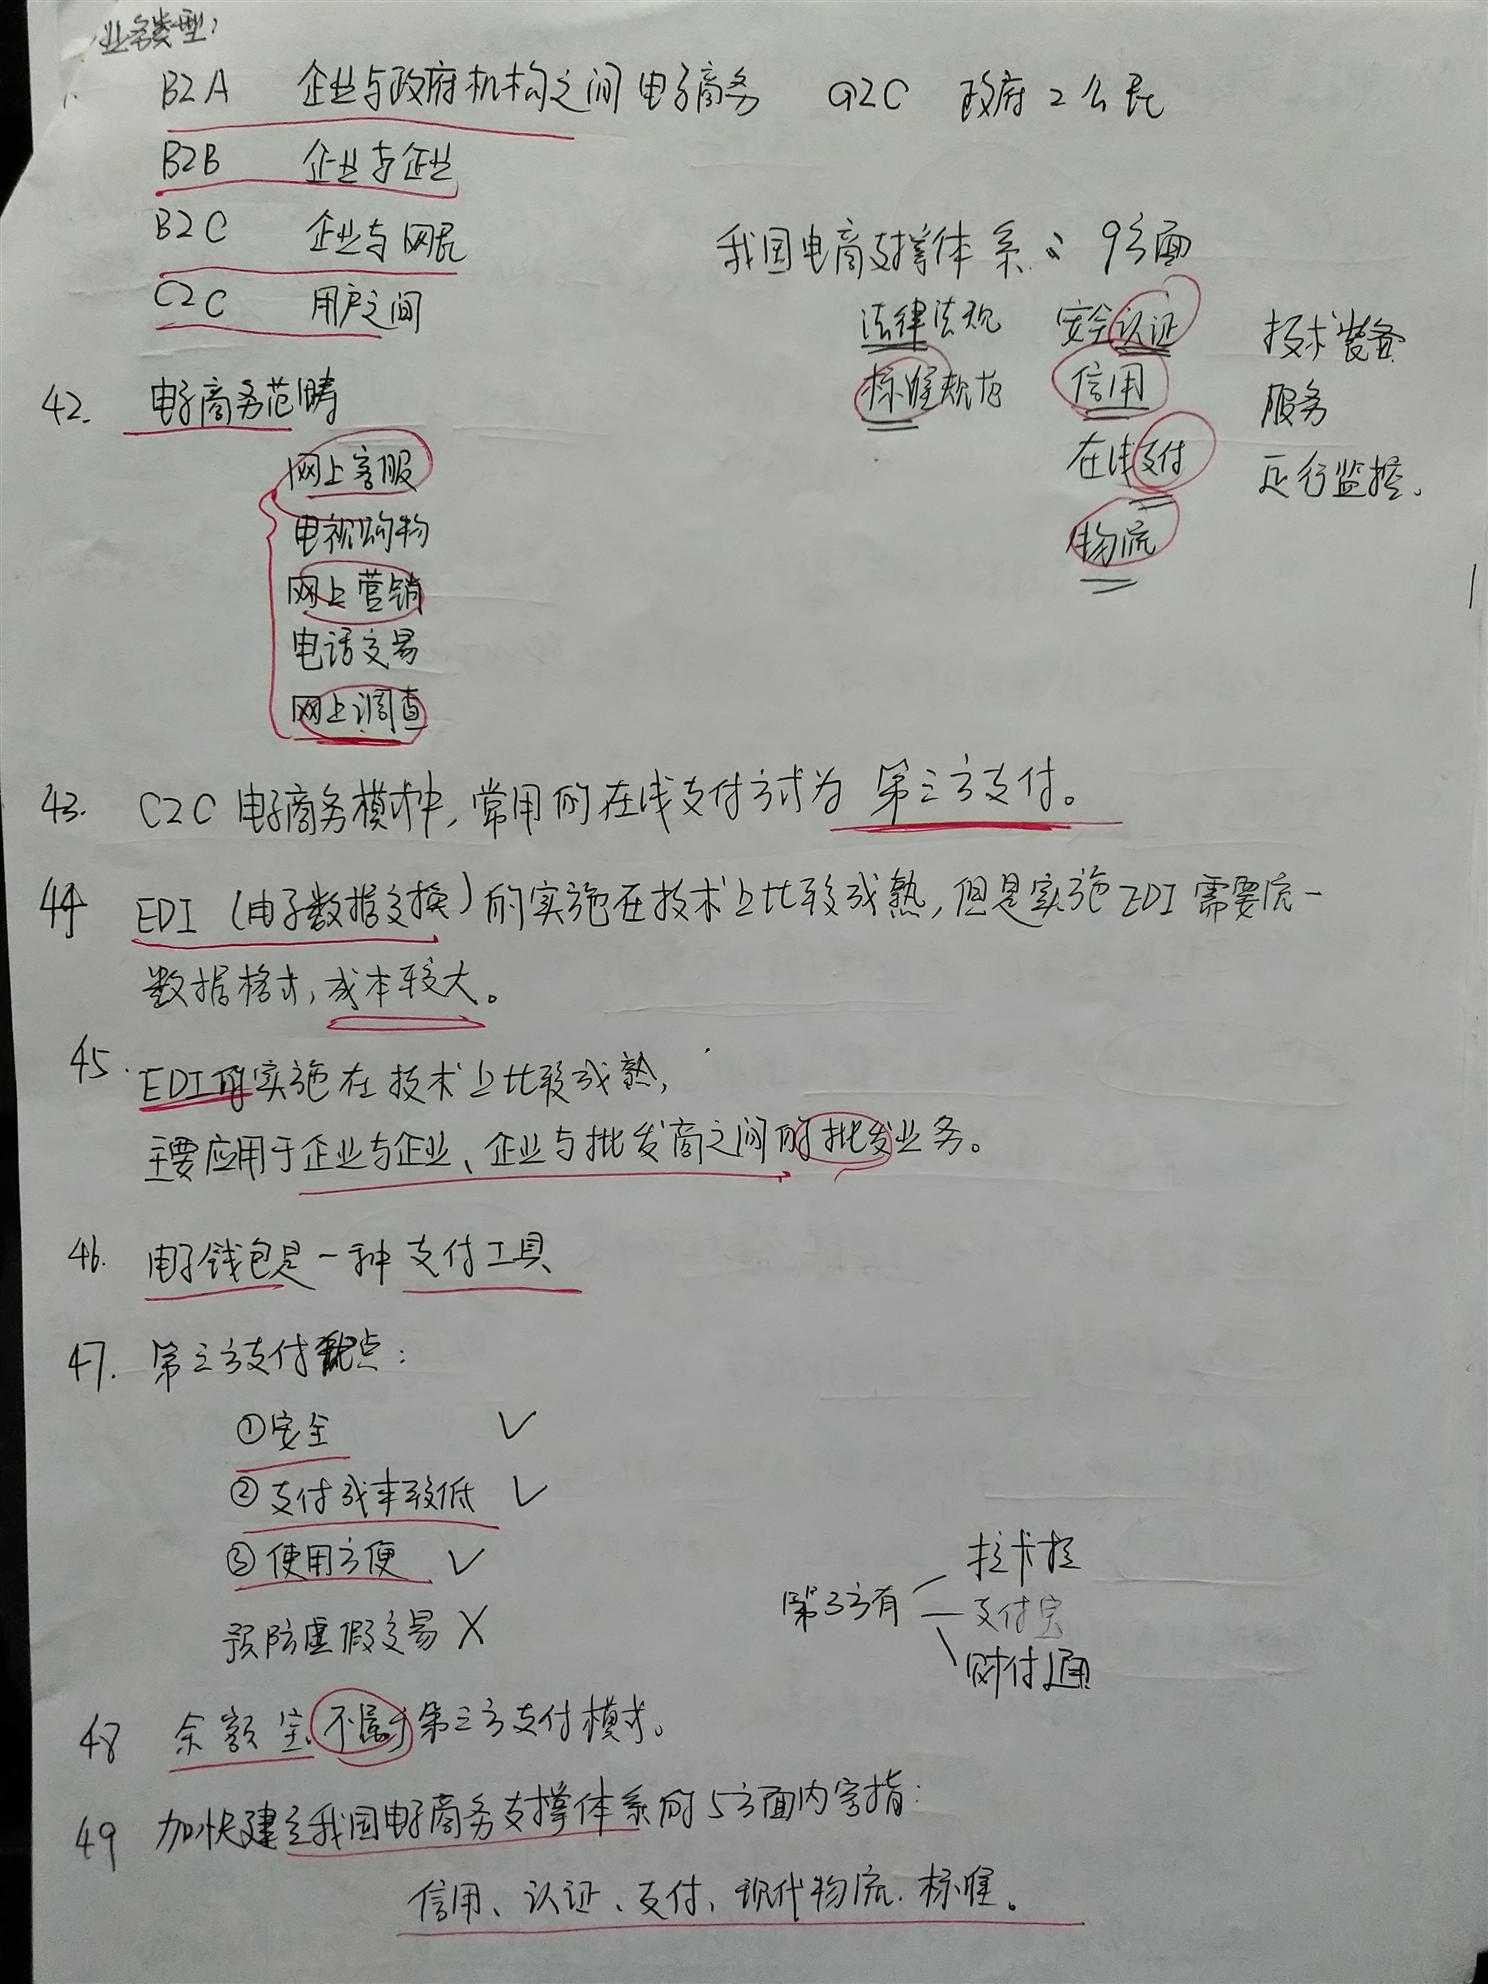 业务类型:
B2A 企业与政府机构之间电子商务 G2C 政府2公民
B2B 企业与企业
B2C 企业与网民
C2C 用户之间
我国电商支撑体系: 9方面
法律法规 安全认证 技术装备
标准规范 信用 服务
在线支付 运行监控.
物流
42. 电子商务范畴
网上客服
电视购物
网上营销
电话交易
网上调查
43. C2C电子商务模式中,常用的在线支付方式为 第三方支付。
44 EDI(电子数据交换)的实施在技术上比较成熟,但是实施EDI需要统一
数据格式,成本较大。
45. EDI的实施在技术上比较成熟,
主要应用于企业与企业、企业与批发商之间的批发业务。
46. 电子钱包是一种支付工具
47. 第三方支付优点:
①安全 ✓
②支付成本较低 ✓
③使用方便 ✓
预防虚假交易 X
第3方有 拉卡拉
支付宝
财付通
48 余额宝不属于第三方支付模式。
49 加快建立我国电子商务支撑体系的5方面内容指:
信用、认证、支付、现代物流、标准。